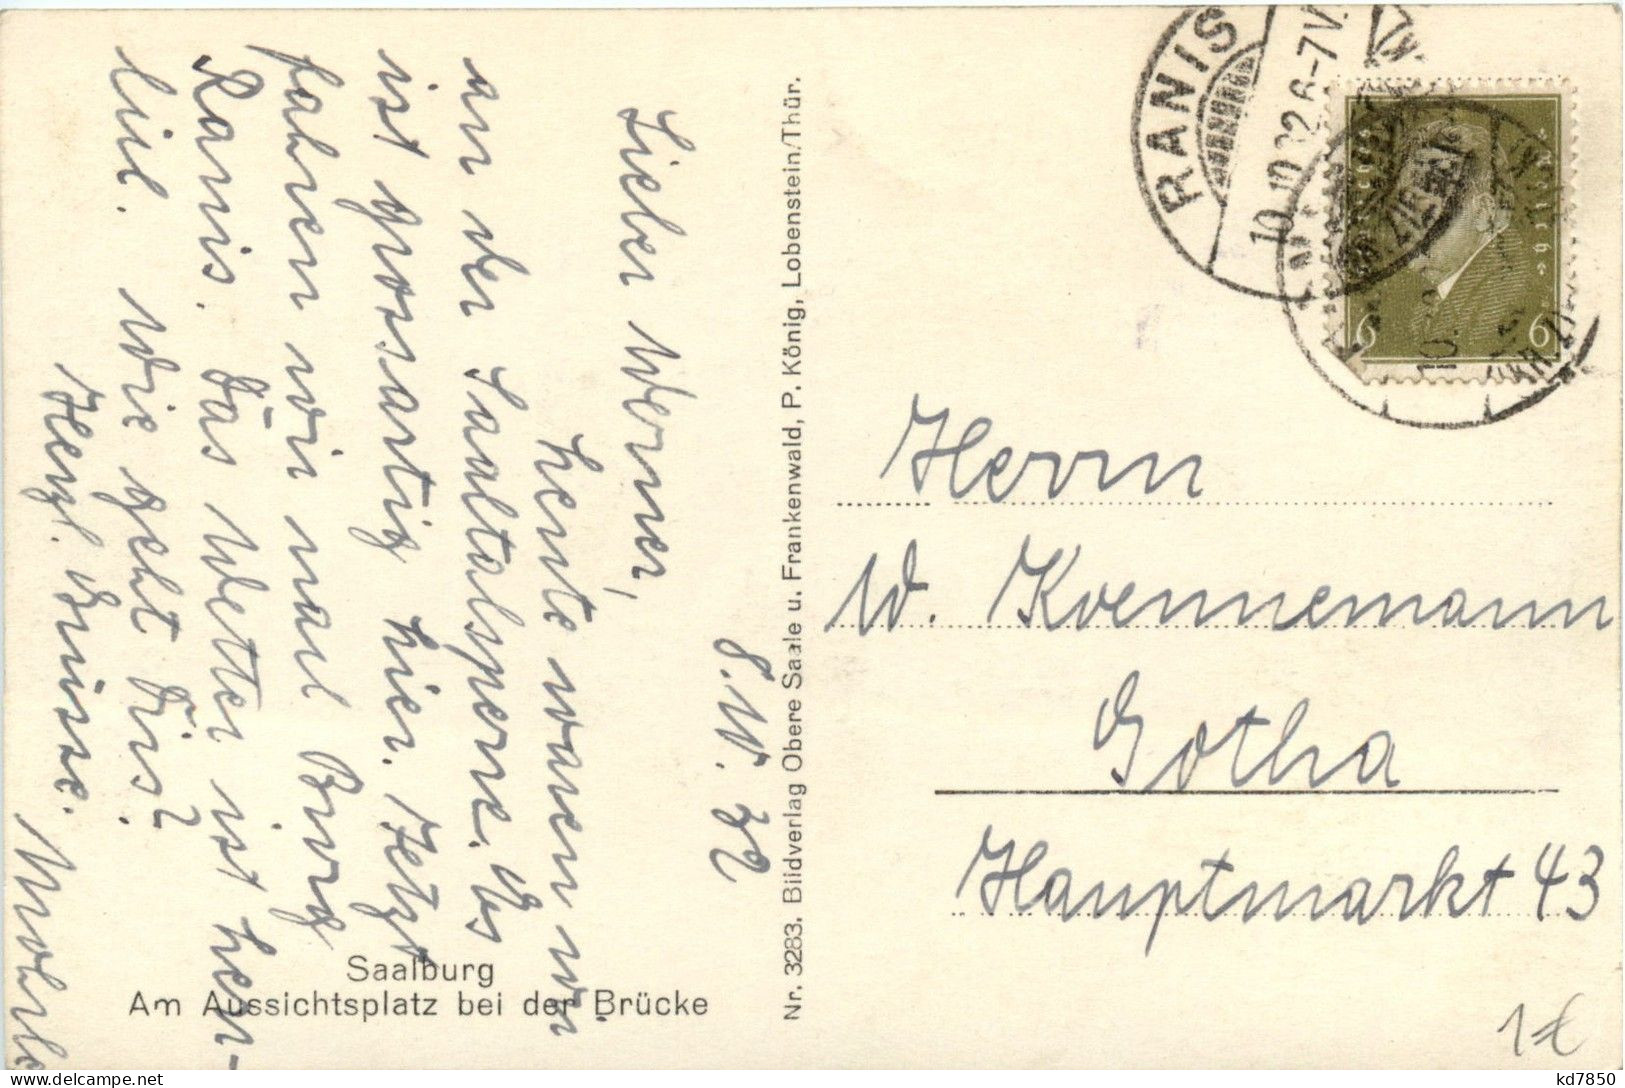 8. IV. 32
Lieber Werner,
heute waren wir
an der Saaltalsperre. Es
ist grossartig hier. Jetzt
fahren wir nach Burg
Ranis. Das Wetter ist herr-
lich. Wie geht Dir's?
Herzl. Grüsse.
Saalburg
Am Aussichtsplatz bei der Brücke
Nr. 3283. Bildverlag Obere Saale u. Frankenwald, P. König, Lobenstein/Thür.
RANIS
10.10.32.6-7V.
6 6
Herrn
W. Kvennemann
Gotha
Hauptmarkt 43
1€
kd7850